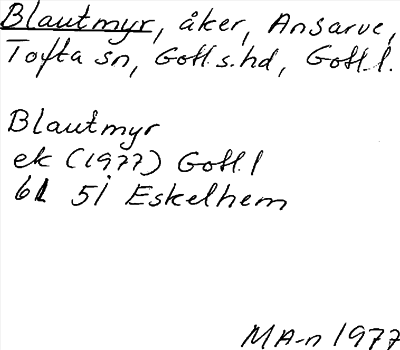 Blautmyr, åker, Ansarve,
Tofta sn, Gotl.s.hd, Gotl.l.
Blautmyr
ek (1977) Gotl.l
6I 5i Eskelhem
MA-n 1977